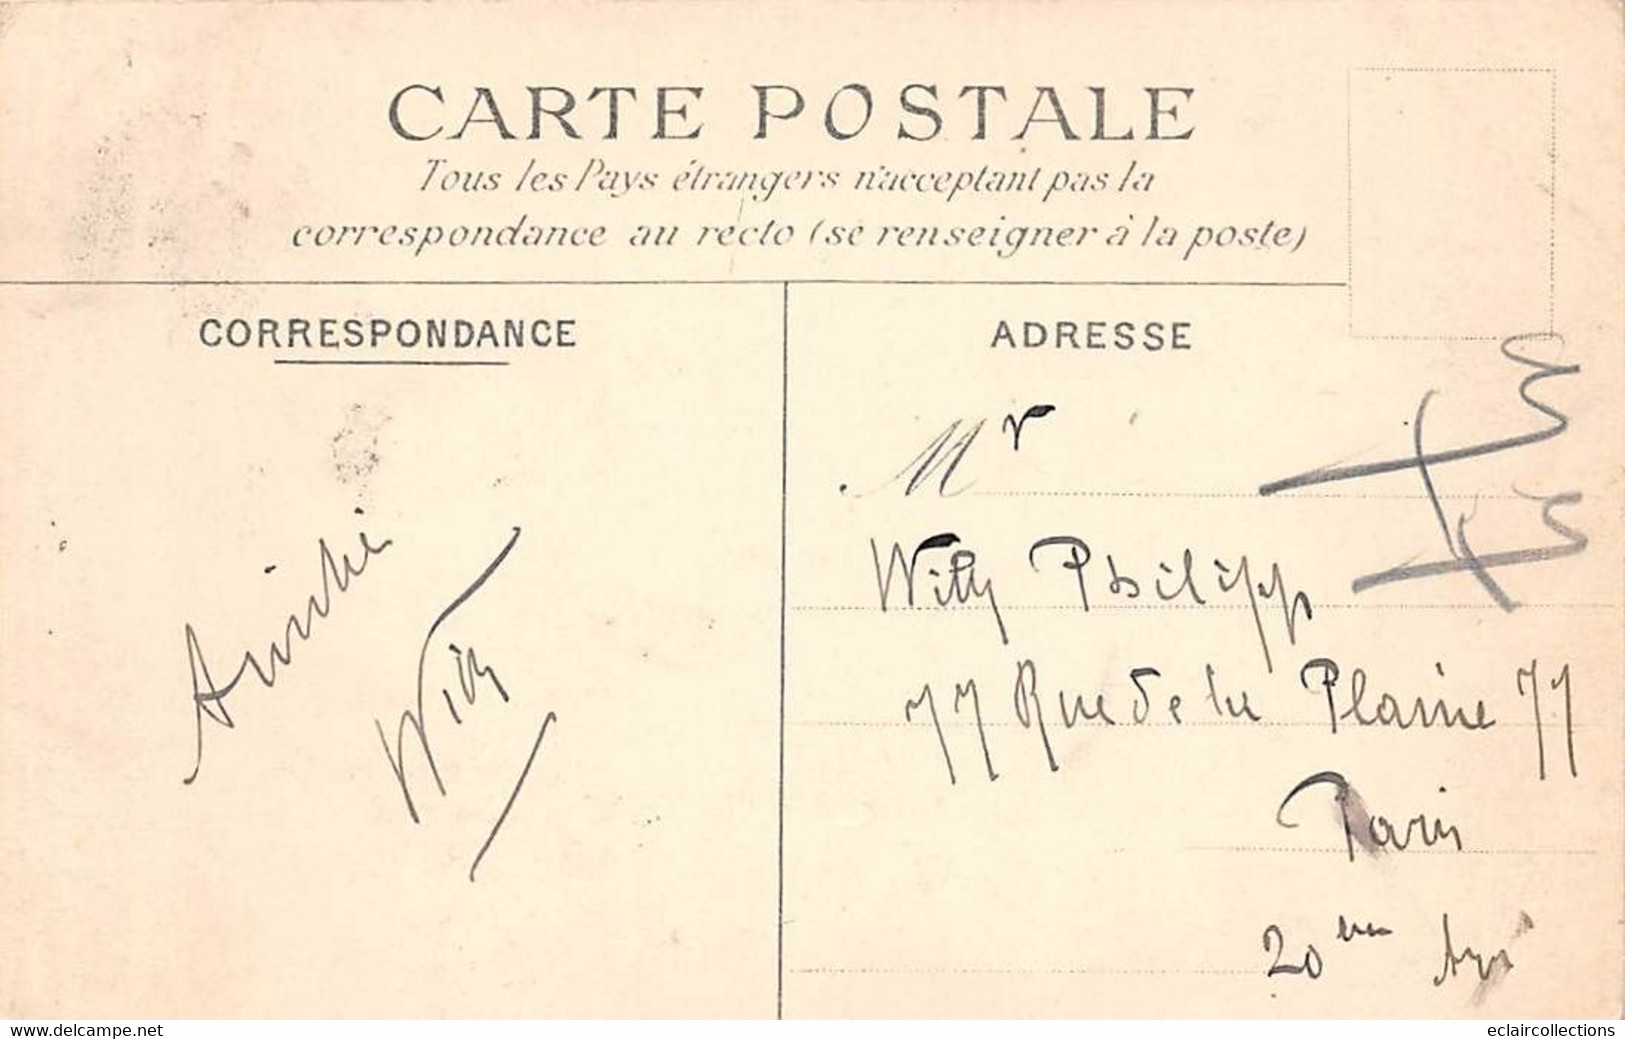 CARTE POSTALE
Tous les Pays étrangers n'acceptant pas la
correspondance au recto (se renseigner à la poste)
CORRESPONDANCE
Amitié
Willy
ADRESSE
Mr
Willy Philipp
77 Rue de la Plaine 77
Paris
20
www.delcampe.net
eclaircollections